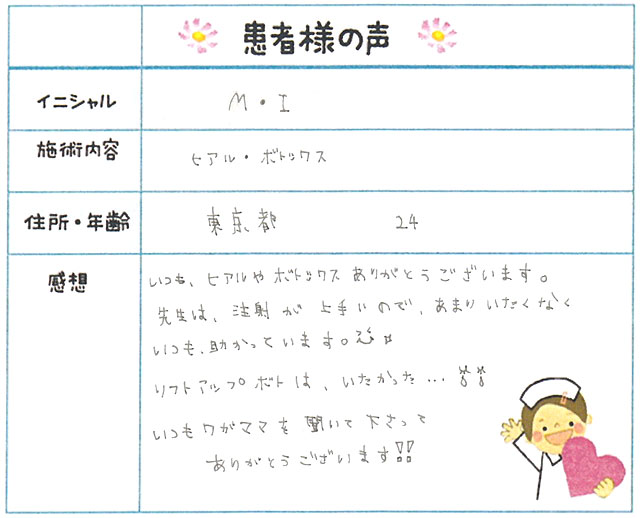 患者様の声
イニシャル M・I
施術内容 ヒアル・ボトックス
住所・年齢 東京都 24
感想
いつも、ヒアルやボトックスありがとうございます。
先生は、注射が上手いので、あまりいたくなく
いつも、助かっています。
リフトアップボトは、いたかった…
いつもワガママを聞いて下さって
ありがとうございます!!